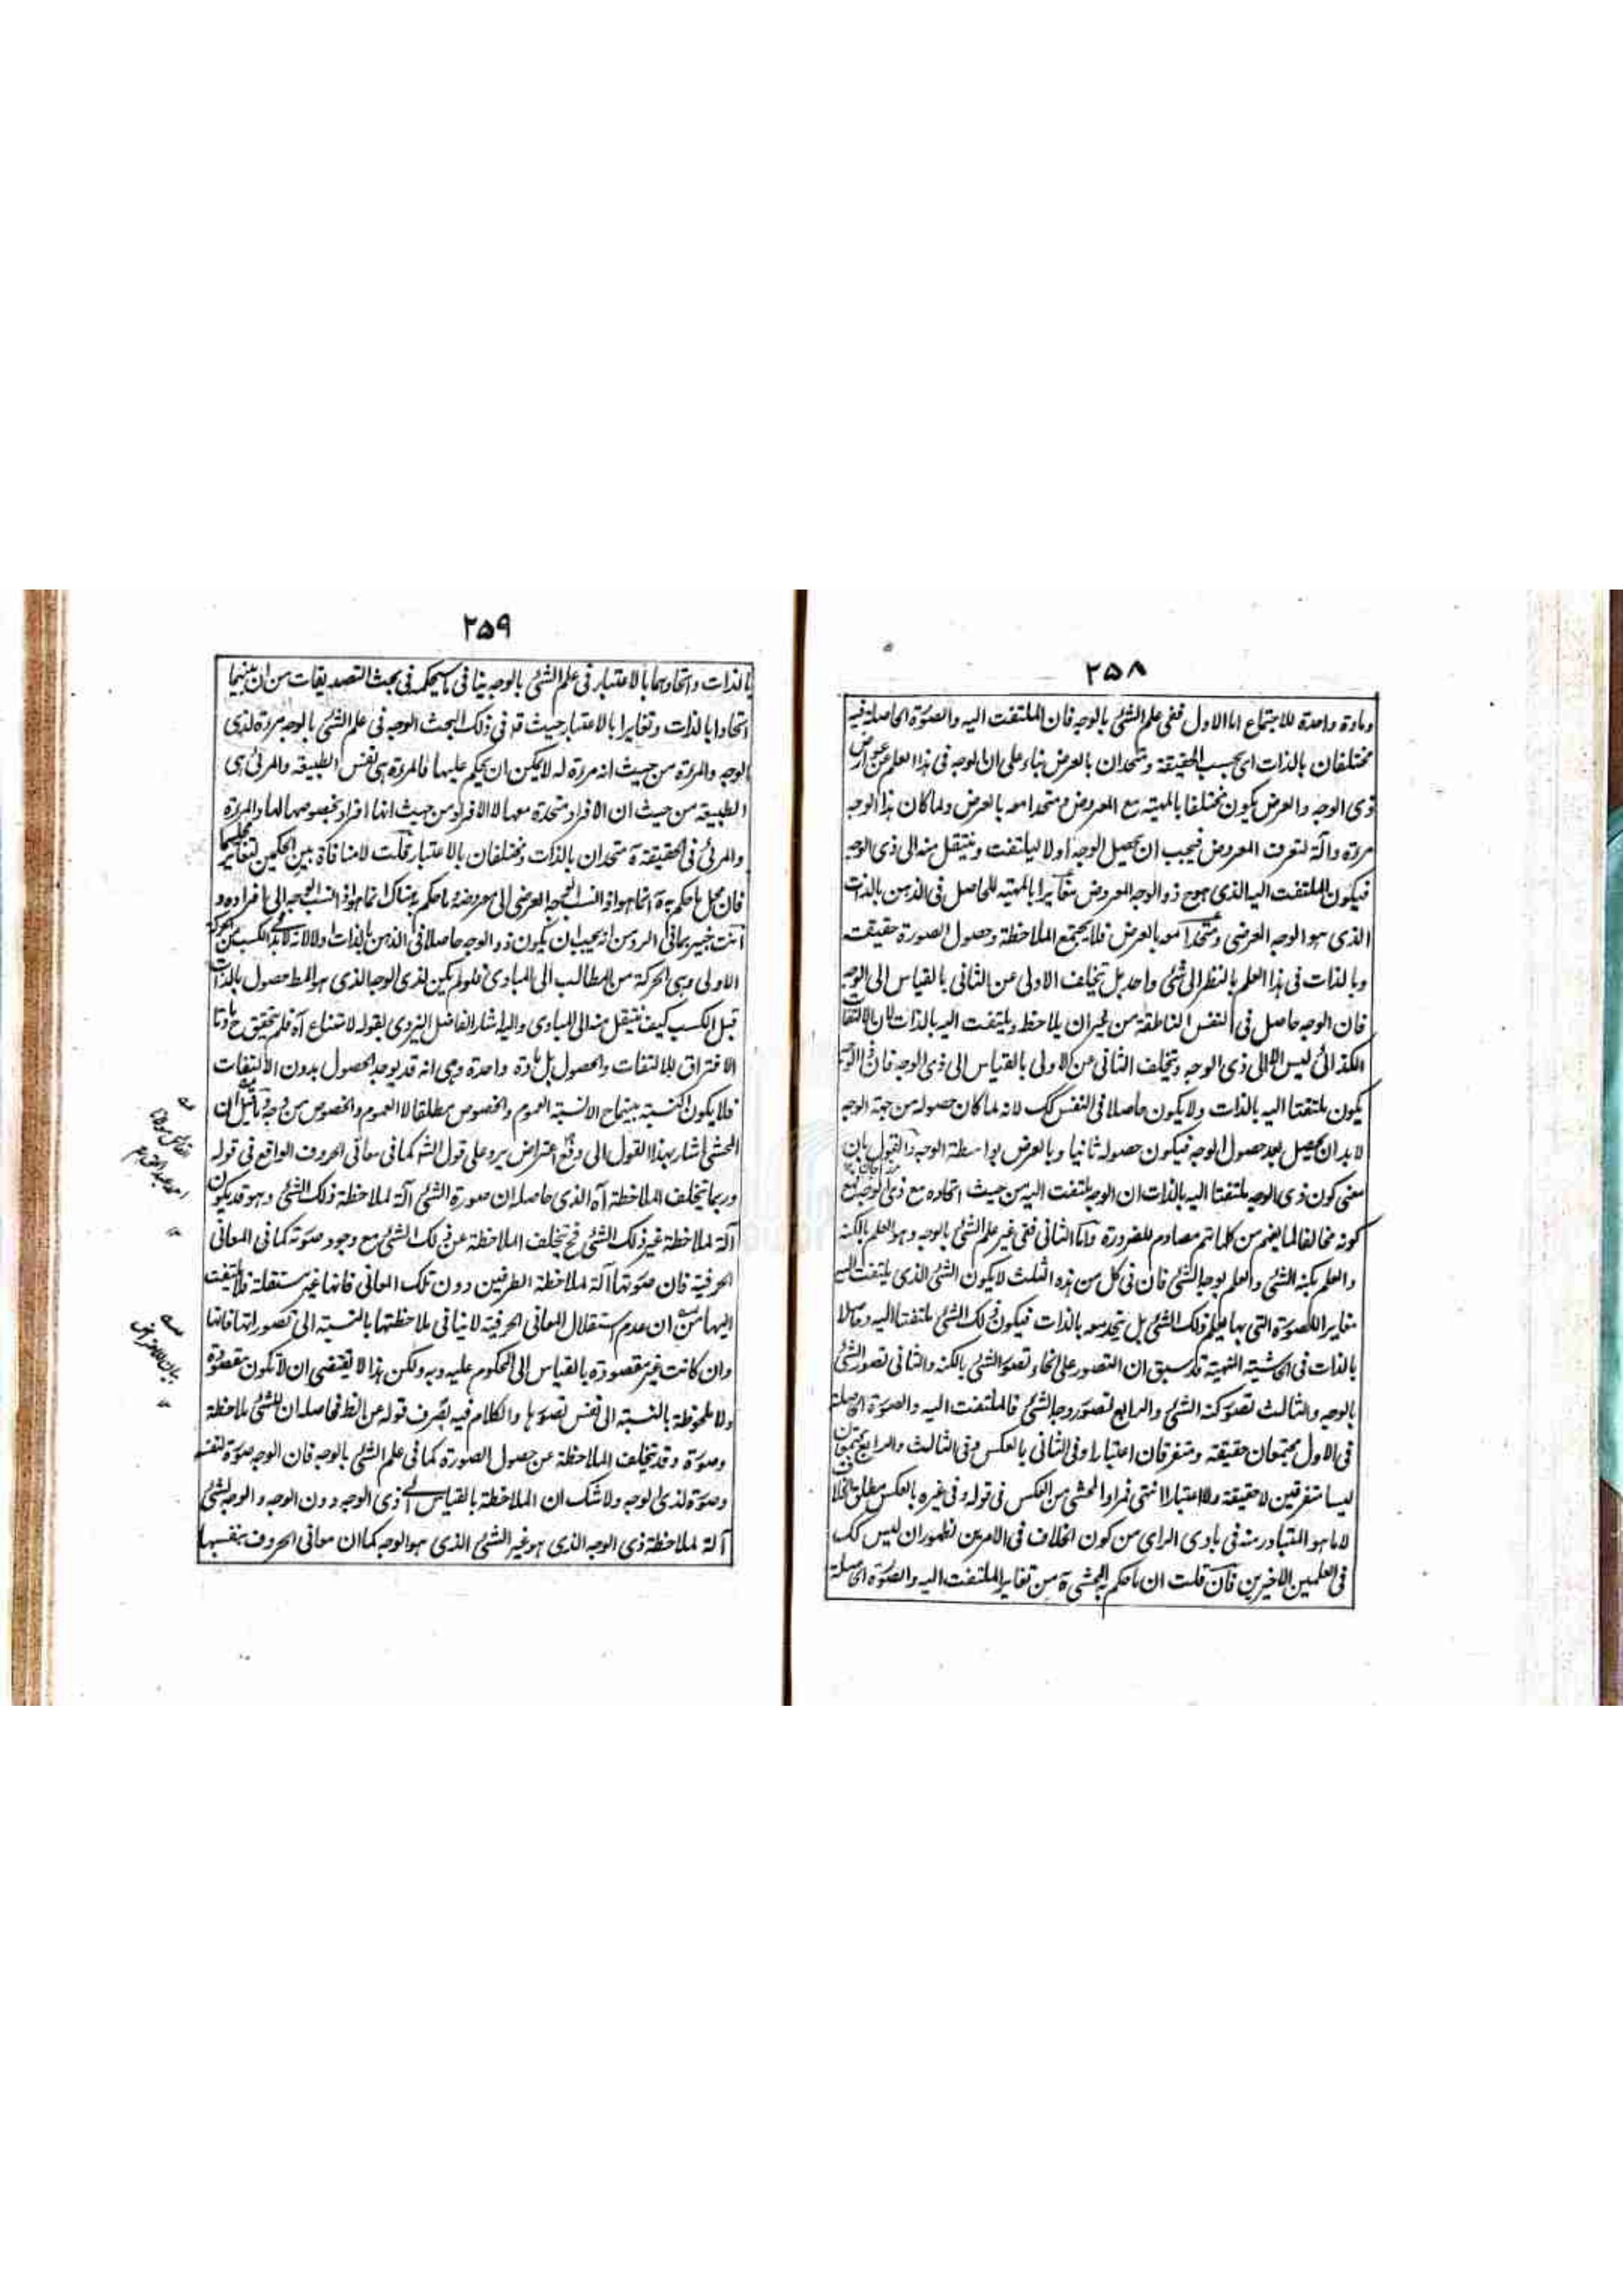 ٢٥٨
ومادة واحدة للاجتماع اما الاول ففى علم الشئ بالوجه فان الملتفت اليه والصورة الحاصلة فيه
مختلفان بالذات اى بحسب الحقيقة ومتحدان بالعرض بناء على ان الوجه فى هذا العلم من عوارض
ذى الوجه والعرض يكون مختلفا بالمهية مع المعروض ومتحدا معه بالعرض ولما كان هذا الوجه
مرءة وآلة لتعرف المعروض فيجب ان يحصل الوجه اولا ليلتفت وينتقل منه الى ذى الوجه
فيكون الملتفت اليه الذى هو ح ذو الوجه المعروض مغايرا بالمهية للحاصل فى الذهن بالذات
الذى هو الوجه العرضى ومتحدا معه بالعرض فلا يجتمع الملاحظة وحصول الصورة حقيقة
وبالذات فى هذا العلم بالنظر الى شئ واحد بل تتخلف الاولى عن الثانى بالقياس الى الوجه
فان الوجه حاصل فى النفس الناطقة من غير ان يلاحظ ويلتفت اليه بالذات لان الالتفات
الكذائى ليس الا الى ذى الوجه ويتخلف الثانى عن الاولى بالقياس الى ذى الوجه فان ذا الوجه
يكون ملتفتا اليه بالذات ولا يكون حاصلا فى النفس كك لانه لما كان حصوله من جهة الوجه
لا بد ان يحصل بعد حصول الوجه فيكون حصوله ثانيا وبالعرض بواسطة الوجه والقول بان
معنى كون ذى الوجه ملتفتا اليه بالذات ان الوجه يلتفت اليه من حيث اتحاده مع ذى الوجه مع
كونه مخالفا لما يفهم من كلماتهم مصادم للضرورة واما الثانى ففى غير علم الشئ بالوجه وهو العلم بالكنه
والعلم بكنه الشئ والعلم بوجه الشئ فان فى كل من هذه الثلث لا يكون الشئ الذى يلتفت اليه
مغايرا للصورة التى بها علم ذلك الشئ بل يتحد معه بالذات فيكون ذلك الشئ ملتفتا اليه وحاصلا
بالذات فى الحاشية المنهية قد سبق ان التصور على انحاء تصور الشئ بالكنه والثانى تصور الشئ
بالوجه والثالث تصور كنه الشئ والرابع تصور وجه الشئ فالملتفت اليه والصورة الحاصلة
فى الاول مجتمعان حقيقة ومتفرقان اعتبارا وفى الثانى بالعكس وفى الثالث والرابع مجتمعان
ليسا متفرقين لا حقيقة ولا اعتبارا انتهى فمراد المحشى من العكس فى قوله وفى غيره بالعكس مطلق الخلاف
لا ما هو المتبادر منه فى بادى الراى من كون الخلاف فى الامرين لظهور ان ليس كك
فى العلمين الاخيرين فان قلت ان ما حكم به المحشى ة من تغاير الملتفت اليه والصورة الحاصلة
٢٥٩
بالذات واتحادهما بالاعتبار فى علم الشئ بالوجه ينافى ما سيحكمه فى بحث التصديقات من ان بينهما
اتحادا بالذات وتغايرا بالاعتبار حيث قد فى ذلك البحث الوجه فى علم الشئ بالوجه مرءة لذى
الوجه والمرءة من حيث انه مرءة له لا يمكن ان يحكم عليها فالمرءة هى نفس الطبيعة والمرئى هى
الطبيعة من حيث ان الافراد متحدة معها لا الافراد من حيث انها افراد بخصوصها لها والمرءة
والمرئى فى الحقيقة ة متحدان بالذات ومختلفان بالاعتبار قلت لا منافاة بين الحكمين لتغاير محليهما
فان محل ما حكم به ة انما هو اذا نسب الوجه العرضى الى معروضه وما حكم به هناك انما هو اذا نسب الوجه الى افراده و
انت خبير بما فى الرد من انه يجب ان يكون ذو الوجه حاصلا فى الذهن بالذات اولا لانه لا بد فى الكسب من الحركة
الاولى وهى الحركة من المطالب الى المبادى فلو لم يكن لذى الوجه الذى هو المط حصول بالذات
قبل الكسب كيف ينتقل منه الى المبادى واليه اشار الفاضل اليزدى بقوله لامتناع آه فلم يتحقق ح مادتا
الافتراق للالتفات والحصول بل مادة واحدة وهى انه قد يوجد الحصول بدون الالتفات
فلا يكون النسبة بينهما ح الا نسبة العموم والخصوص مطلقا لا العموم والخصوص من وجه قيل ان
المحشى اشار بهذا القول الى دفع اعتراض يرد على قول الشه كما فى معانى الحروف الواقع فى قوله
وربما يتخلف الملاحظة آه الذى حاصله ان صورة الشئ آلة لملاحظة ذلك الشئ وهو قد يكون
آلة لملاحظة غير ذلك الشئ فح يتخلف الملاحظة عن ذلك الشئ مع وجود صورته كما فى المعانى
الحرفية فان صورتها آلة لملاحظة الطرفين دون تلك المعانى فانها غير مستقلة فلا يلتفت
اليها من ان عدم استقلال المعانى الحرفية لا ينافى ملاحظتها بالنسبة الى تصوراتها فانها
وان كانت غير مقصودة بالقياس الى المحكوم عليه وبه ولكن هذا لا يقتضى ان لا تكون مقصودة
ولا ملحوظة بالنسبة الى نفس تصورها والكلام فيه بصرف قوله عن الظ فحاصله ان للشئ ملاحظة
وصورة وقد تتخلف الملاحظة عن حصول الصورة كما فى علم الشئ بالوجه فان الوجه صورة لنفسه
وصورة لذى الوجه ولا شك ان الملاحظة بالقياس الى ذى الوجه دون الوجه والوجه لشئ
آلة لملاحظة ذى الوجه الذى هو غير الشئ الذى هو الوجه كما ان معانى الحروف بنفسها
بيان للاعتراض